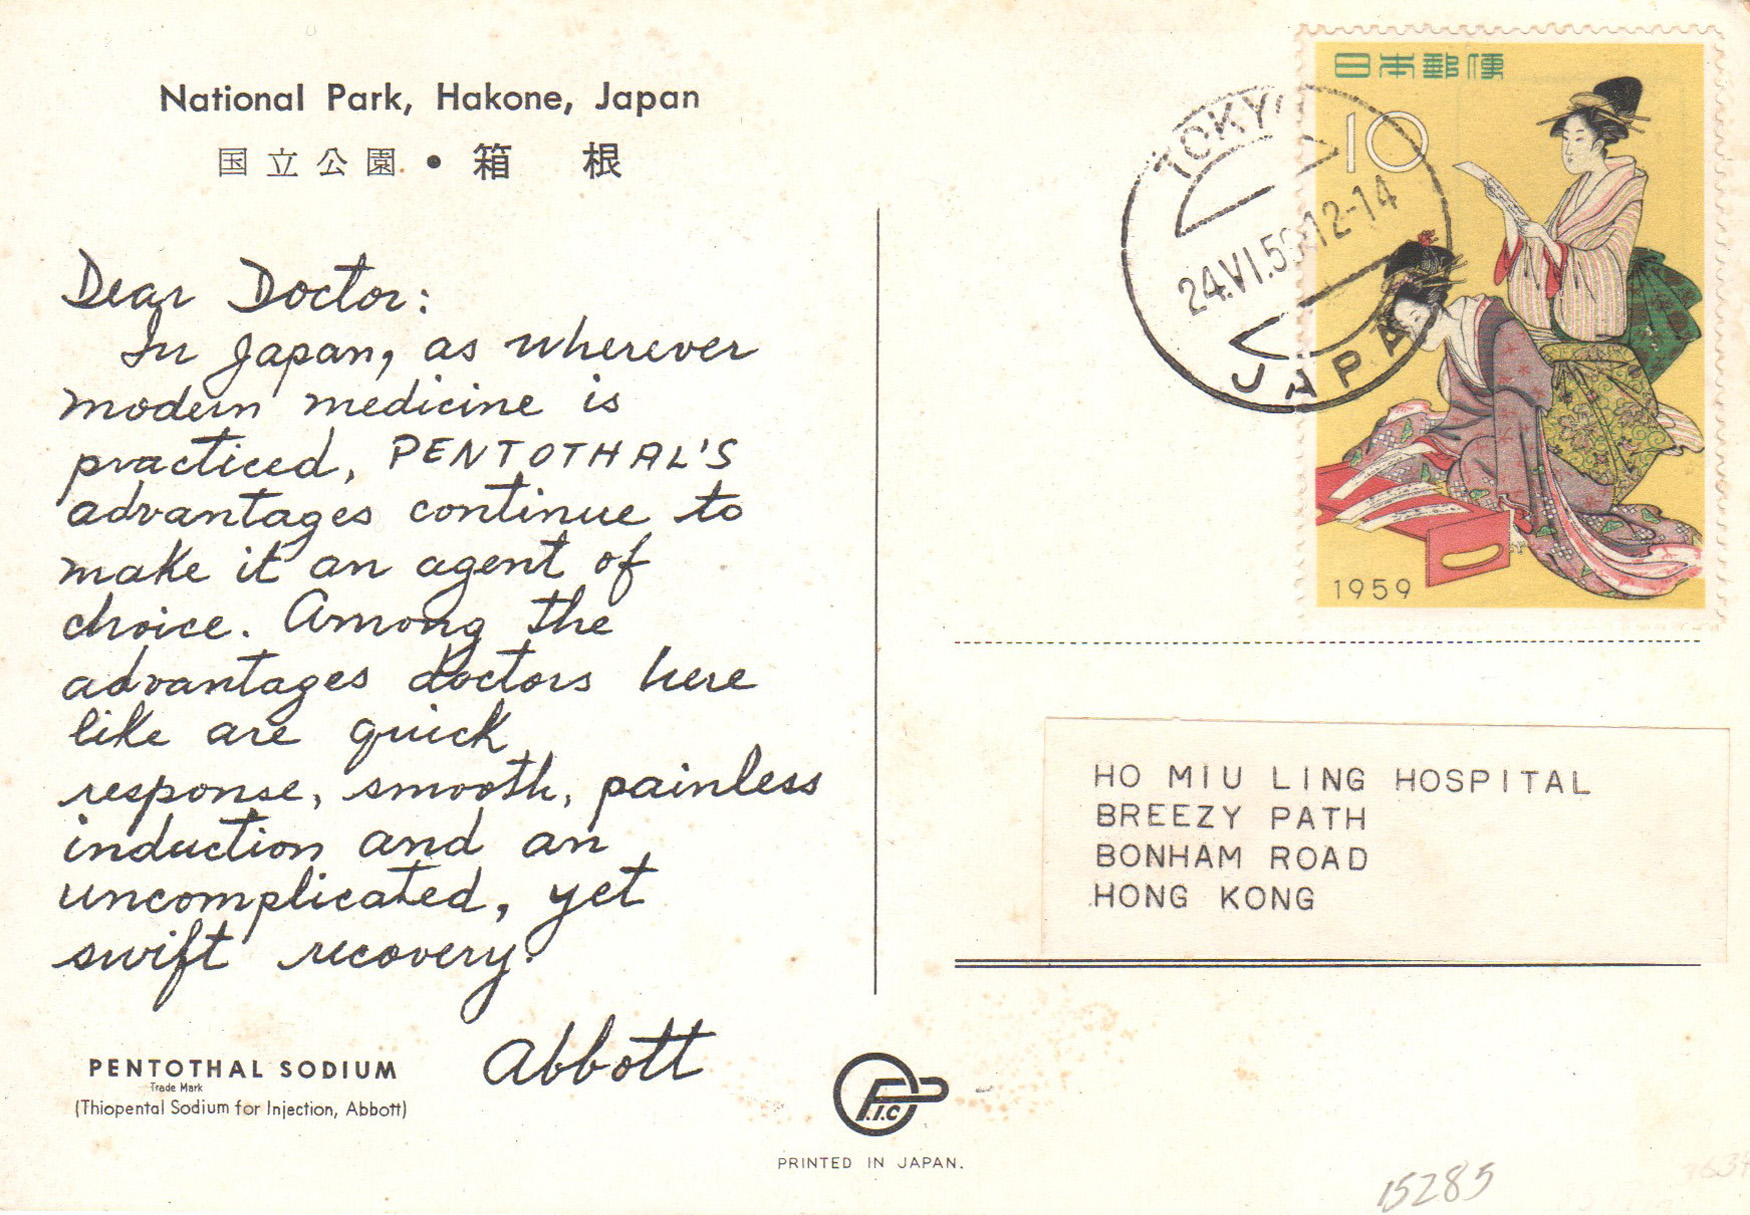 National Park, Hakone, Japan
国立公園・箱 根
Dear Doctor:
In Japan, as wherever
modern medicine is
practiced, PENTOTHAL'S
advantages continue to
make it an agent of
choice. Among the
advantages doctors here
like are quick
response, smooth, painless
induction and an
uncomplicated, yet
swift recovery.
Abbott
PENTOTHAL SODIUM
Trade Mark
(Thiopental Sodium for Injection, Abbott)
P.I.C
PRINTED IN JAPAN.
日本郵便
10
1959
TOKYO
24.VI.59.12-14
JAPAN
HO MIU LING HOSPITAL
BREEZY PATH
BONHAM ROAD
HONG KONG
15285